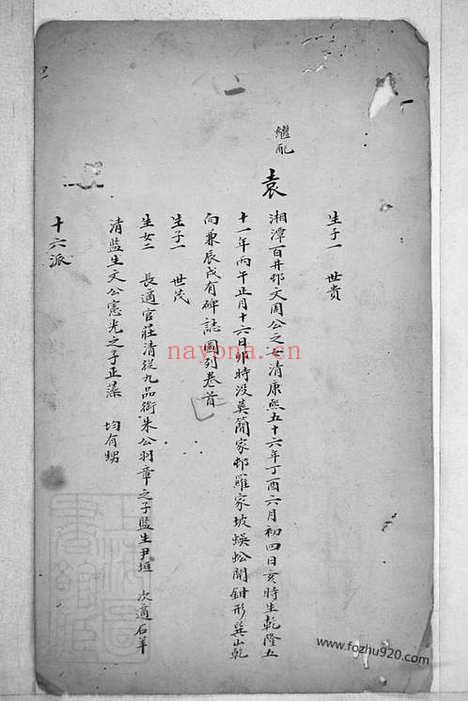 生子一 世贵
繼配
袁
湘潭百井邨文周公之女清康熙五十六年丁酉六月初四日亥時生乾隆五
十一年丙午正月十六日卯時没葬簡家邨羅家坡蜈蚣開鉗形巽山乾
向兼辰戌有碑誌圖列卷首
生子一 世茂
生女二 長適官莊清從九品銜朱公羽章之子監生尹垣 次適石羊
清監生文公憲光之子正藻 均有甥
十六派
nayona.cn
www.fozhu920.com